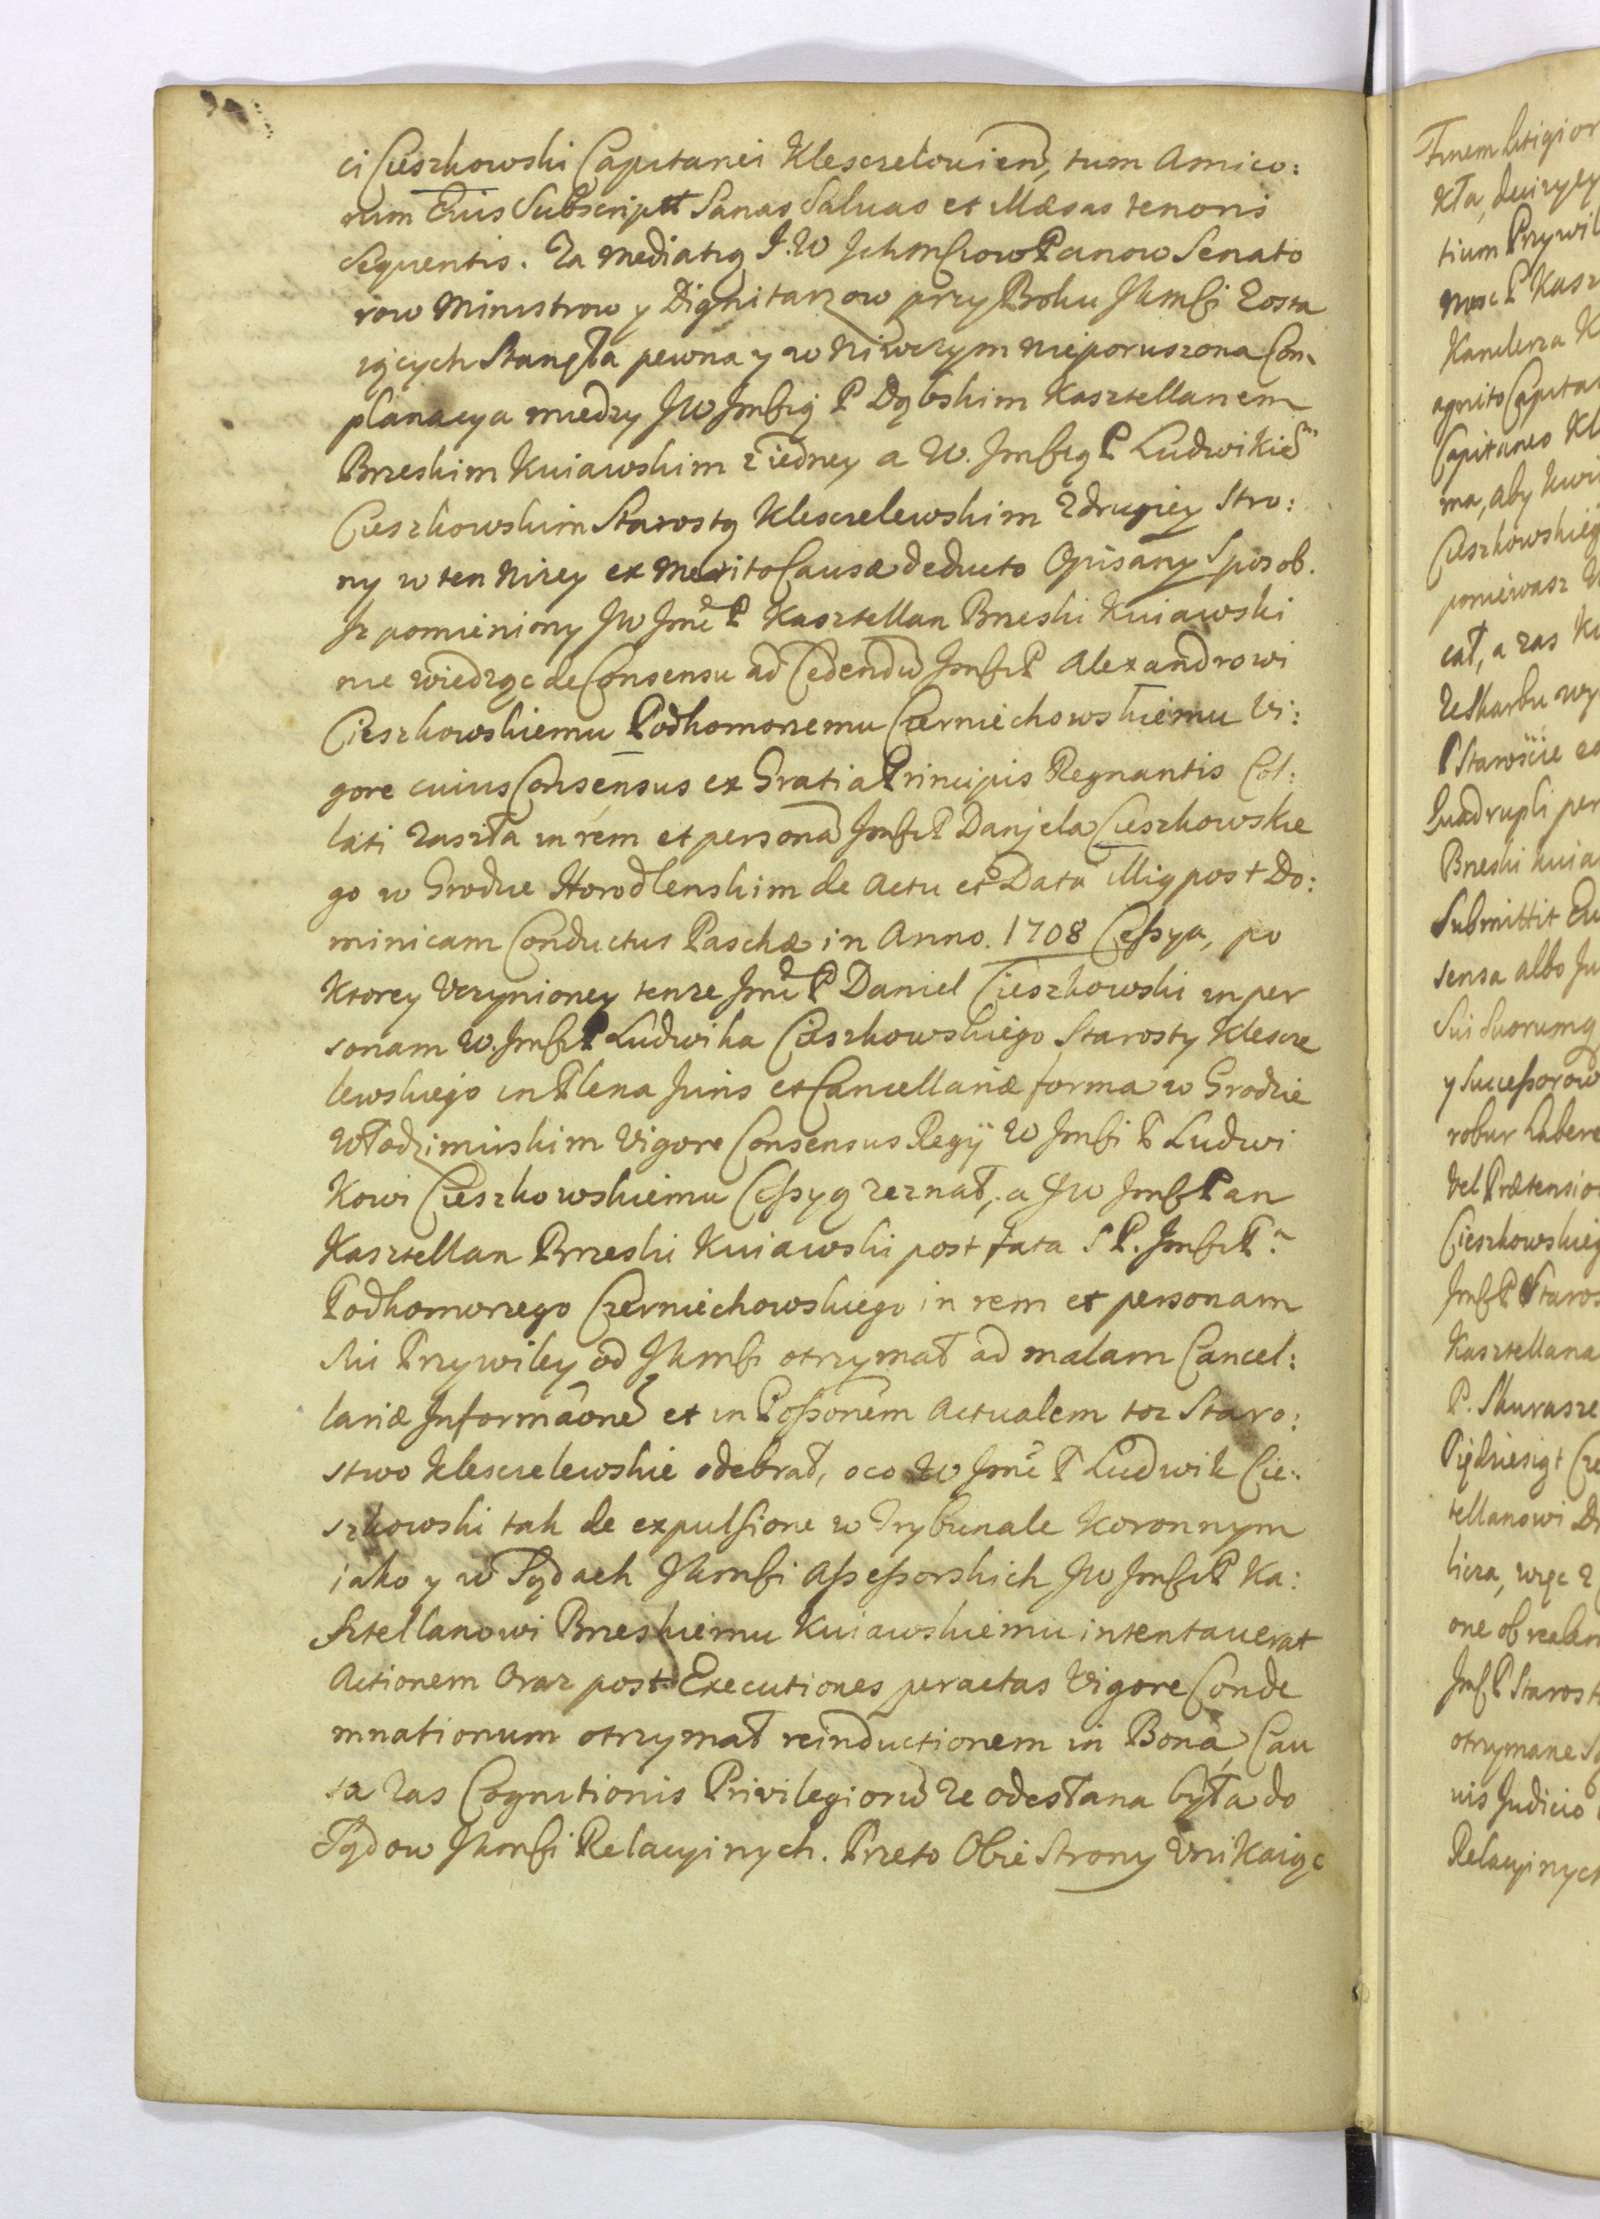 ci Cieszkowski Capitanei Klescelovien, tum Amico:
rum Eius Subscriptt Sanas Salvas et Illæsas tenoris
Sequentis. Za mediatią J.W Ichmściow Panow Senato
row Ministrow y Dignitarzow przy Boku JKmśi Zosta
iących Stanęła pewna y w niwczym nieporuszona Com
planacya miedzy JW Jmśią P Dąbskim Kasztellanem
Brzeskim Kuiawskim z iedney a W. Jmśią P Ludwikiem
Cieszkowskim Starostą Klesczelewskim z drugiey Stro:
ny w ten niżey ex merito Causæ deducto Opisany Sposob.
Iz pomieniony JW Jmć P Kasztellan Brzeski Kuiawski
nie wiedząc de Consensu ad Cedendū Jmśi P Alexandrowi
Cieszkowskiemu Podkomorzemu Czerniechowskiemu Vi:
gore cuius Consensus ex Gratia Principis Regnantis Col:
lati zaszła in rem et personā Jmśi P Danjela Cieszkowskie
go w Grodzie Horodlenskim de Actu et Data IIIig post Do:
minicam Conductus Paschæ in Anno. 1708 Cessya, po
Ktorey Uczynioney tenze Jmć P Daniel Cieszkowski in per
sonam W. Jmśi P Ludwika Cieszkowskiego Starosty Klescze
lewskiego in Plena Juris et Cancellariæ forma w Grodzie
Włodzimirskim Vigore Consensus Regÿ W Jmśi P Ludwi
Kowi Cieszkowskiemu Cessyą zeznał, a JW Jmść Pan
Kasztellan Brzeski Kuiawski post fata S P. Jmśi Pa
Podkomorzego Czerniechowskiego in rem et personam
Sui Przywiley od JKmśi otrzymał ad malam Cancel:
lariæ Informaõnē et in Possonēm Actualem toz Staro:
stwo Klesczelewskie odebrał, oco W Jmć P Ludwik Cie:
szkowski tak de expulsione w Trybunale Koronnym
iako y w Sądach JKmśi Assessorskich JW Jmśi P Ka:
sztellanowi Brzeskiemu Kuiawskiemu intentaverat
Actionem Oraz post Executiones peractas Vigore Conde
mnationum otrzymał reinductionem in Bona, Cau
sa zas Cognitionis Privilegiorū ze odesłana była do
Sądow JKmśi Relacyinych. Przeto Obie Strony Unikaiąc